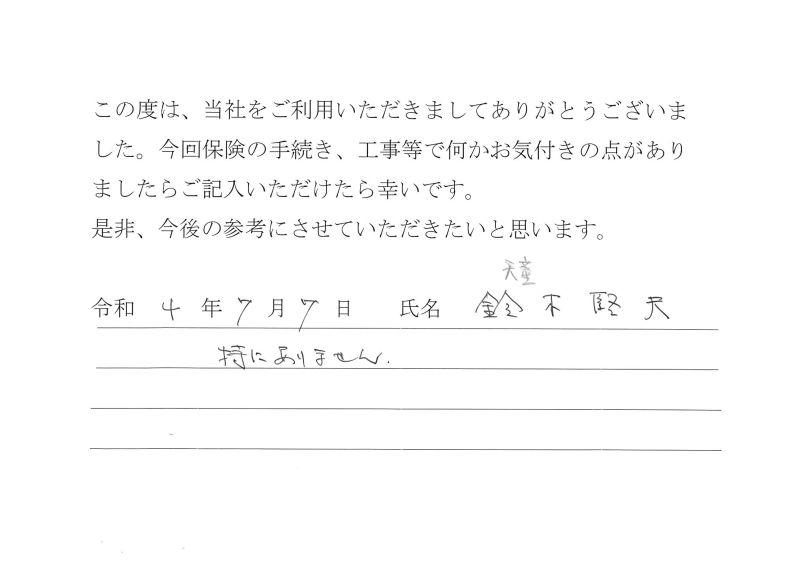 この度は、当社をご利用いただきましてありがとうございま
した。今回保険の手続き、工事等で何かお気付きの点があり
ましたらご記入いただけたら幸いです。
是非、今後の参考にさせていただきたいと思います。
天童
令和 4 年 7 月 7 日 氏名 鈴木
特にありません.